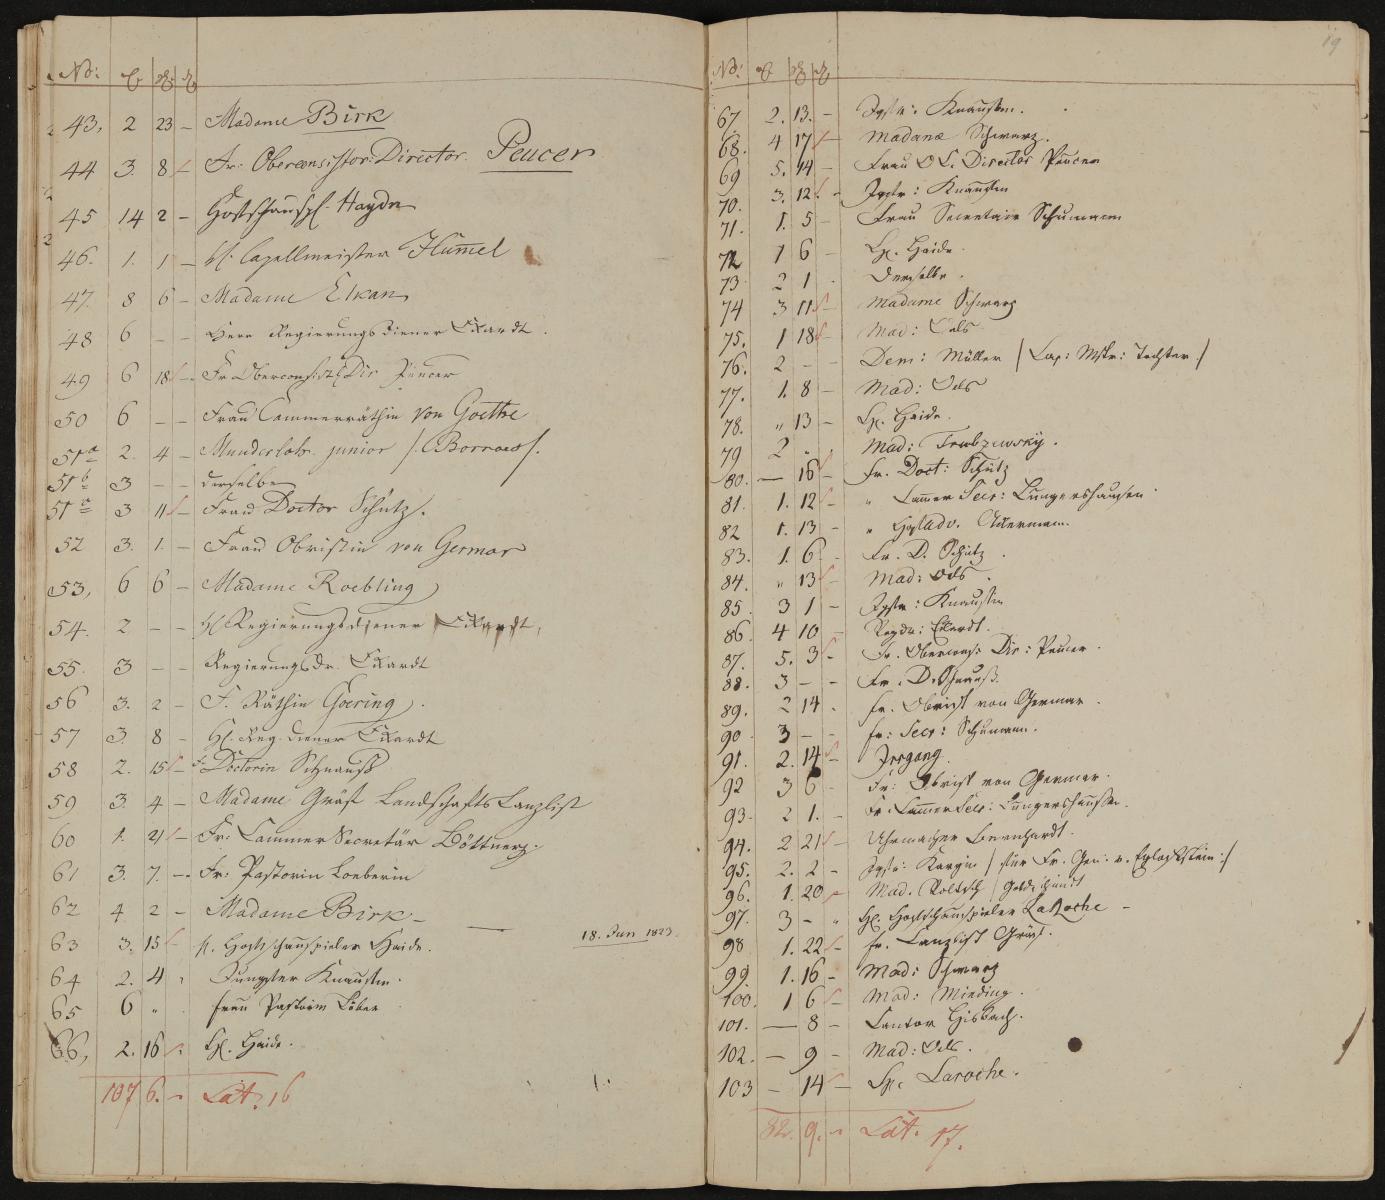 No:
43. 2 23 – Madame Birk
44 3. 8 – Fr: Oberconsistor: Director. Peucer
45 14 2 – Hofschausp. Haydn
46. 1. 1 – H. Capellmeister Hummel
47. 8 6 – Madame Elkan
48 6 – – Herr Regierungsdiener Eckardt.
49 6 18 – Fr Oberconsist. Dir Peucer
50 6 – – Frau Cammerräthin von Goethe
51a 2. 4 – Munderloh junior /. Borrows /.
51b 3 – – derselbe
51c 3 11 – Frau Doctor Schütz.
52 3. 1. – Frau Obristin von Germar
53, 6 6 – Madame Roebling
54. 2 – – H Regierungsdiener Eckardt,
55. 3 – – Regierungsdr. Eckardt
56 3. 2 – F. Räthin Goering.
57 3. 8 – H. Reg. diener Eckardt
58 2. 15 – Fr Doctorin Schnauß
59 3. 4 – Madame Gräf Landschafts Canzlist
60 1. 21 – Fr: Cammer Secretär Böttnerg.
61 3. 7. – Fr: Pastorin Loeberin
62 4 2 – Madame Birk –
63 3. 15 – H. Hofschauspieler Haide. 18. Jun 1823
64 2. 4 " Jungfer Knaustin.
65 6 " Frau Pastorin Löber
66, 2. 16 H. Haide.
107 6. – Lat. 16
19
No:
67 2. 13. – Jgfr: Knaustin.
68. 4 17 – Madame Schwarz.
69 5. 14 – Frau O C. Director Peucer
70. 3. 12. – Jgfr: Knaustin
71. 1. 5 – Frau Secretair Schumann
72 1 6 – H. Haide.
73 2 1 . Derselbe.
74 3 11 – Madame Schwarz
75. 1 18 – Mad: Oels
76. 2 – – Dem: Müller /: Cap: Mstr: Tochter :/
77. 1. 8 – Mad: Oels
78. " 13 – H. Haide.
79 2 " Mad:
80. — 16 – Fr. Doct: Schütz
81. 1. 12 – " Cammer Secr: Lungershausen.
82 1. 13 – " Hofadv. Ackermann.
83. 1. 6 . Fr. D. Schütz.
84. " 13 – Mad: Oels.
85 3 1 – Jgfr: Knaustin
86. 4 10 – Regdr: Eckardt.
87. 5. 3 – Fr. Obercons: Dir: Peucer.
88. 3 – – Fr. D. Schnauß.
89. 2 14 . Fr. Obrist von Germar.
90 3 – – Fr: Secr: Schumann.
91. 2. 14 – Irrgang.
92 3 6 – Fr: Obrist von Germar.
93. 2 1. – Fr. Cammer Secr: Lungershausen.
94. 2 21 – Uhrmacher Bernhardt.
95. 2. 2 – Jgfr: /: für Fr. Gen: v. Egloffstein :/
96. 1. 20 – Mad.
97. 3 – " H. Hofschauspieler LaRoche –
98 1. 22 – Fr. Canzlist Gräf.
99. 1. 16 – Mad: Schwarz
100. 1 6 – Mad: Minding.
101. — 8 – Cantor
102. — 9 – Mad: Oels.
103 – 14 – H. Laroche.
82. 9. – Lat. 17.